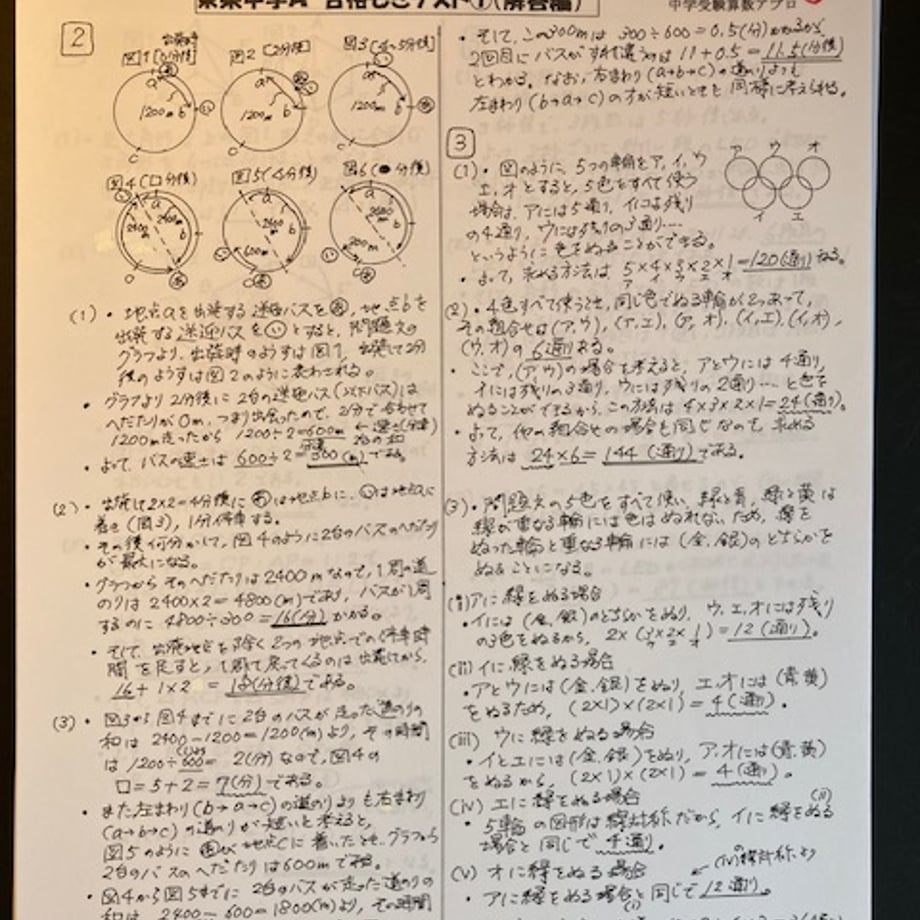 合格もぎテスト①(解答編)
中学受験算数アプロ
2
図1[0分後]
図2[2分後]
図3[4~5分後]
1200m
1200m
1200m
図4(□分後)
図5(△分後)
図6(●分後)
(1)・地点aを出発する送迎バスをあ、地点bを
出発する送迎バスをいとすると、問題文の
グラフより、出発時のようすは図1、出発して2分
後のようすは図2のように表わされる。
・グラフより2分後に2台の送迎バス(以下バス)は
へだたりが0m、つまり出会ったので、2分で合わせて
1200m走ったから 1200÷2=600m ←速さ(分速)の和
・よって、バスの速さは 600÷2=300(m)である。
(2)・出発して2×2=4分後にあは地点bに、いは地点aに
着き(図3)、1分停車する。
・その後何分かして、図4のように2台のバスのへだたり
が最大になる。
・グラフからそのへだたりは2400mなので、1周の道
のりは2400×2=4800(m)であり、バスが1周
するのに 4800÷300=16(分)かかる。
・そして、出発地点を除く2つの地点での停車時
間を足すと、1周して戻ってくるのは出発してから、
16+1×2=18(分後)である。
(3)・図3から図4までに2台のバスが走った道のりの
和は 2400-1200=1200(m)より、その時間
は 1200÷600=2(分)なので、図4の
□=5+2=7(分)である。
・また左まわり(b→a→c)の道のりよりも右まわり
(a→b→c)の道のりが短いと考えると、
図5のようにあが地点cに着いたとき、グラフから
2台のバスのへだたりは600mである。
・図4から図5までに2台のバスが走った道のりの
和は 2400-600=1800(m)より、その時間
・そして、この300mは 300÷600=0.5(分)かかるから、
2回目にバスがすれ違うのは 11+0.5=11.5(分後)
とわかる。なお、右まわり(a→b→c)の道のりよりも
左まわり(b→a→c)の方が短いときも同様に考えられる。
3
(1)・図のように、5つの輪をア、イ、ウ
エ、オとすると、5色をすべて使う
場合は、アには5通り、イには残り
の4通り、ウには残りの3通り…
というように色をぬることができる。
・よって、求める方法は 5×4×3×2×1=120(通り)ある。
ア イ ウ エ オ
(2)・4色すべて使うとき、同じ色でぬる輪が2つあって、
その組合せは(ア,ウ)、(ア,エ)、(ア,オ)、(イ,エ)、(イ,オ)、
(ウ,オ)の6通りある。
・ここで、(ア,ウ)の場合を考えると、アとウには4通り、
イには残りの3通り、ウには残りの2通り…と色を
ぬることができるから、この方法は 4×3×2×1=24(通り)。
・よって、他の組合せの場合も同じなので、求める
方法は 24×6=144(通り)である。
(3)・問題文の5色をすべて使い、緑と青、緑と黄は
緑が重なる輪には色はぬれないため、緑を
ぬった輪と重なる輪には(金,銀)のどちらかを
ぬることになる。
(i)アに緑をぬる場合
・イには(金,銀)のどちらかをぬり、ウ,エ,オには残り
の3色をぬるから、2×(3×2×1)=12(通り)。
ウ エ オ
(ii)イに緑をぬる場合
・アとウには(金,銀)をぬり、エ,オには(青,黄)
をぬるため、(2×1)×(2×1)=4(通り)
(iii)ウに緑をぬる場合
・イとエには(金,銀)をぬり、ア,オには(青,黄)
をぬるから、(2×1)×(2×1)=4(通り)。
(iv)エに緑をぬる場合
・5輪の図形は線対称だから、イに緑をぬる(ii)
場合と同じで4通り。
(v)オに緑をぬる場合 ←(iv)の線対称より
・アに緑をぬる場合(i)と同じで12通り。